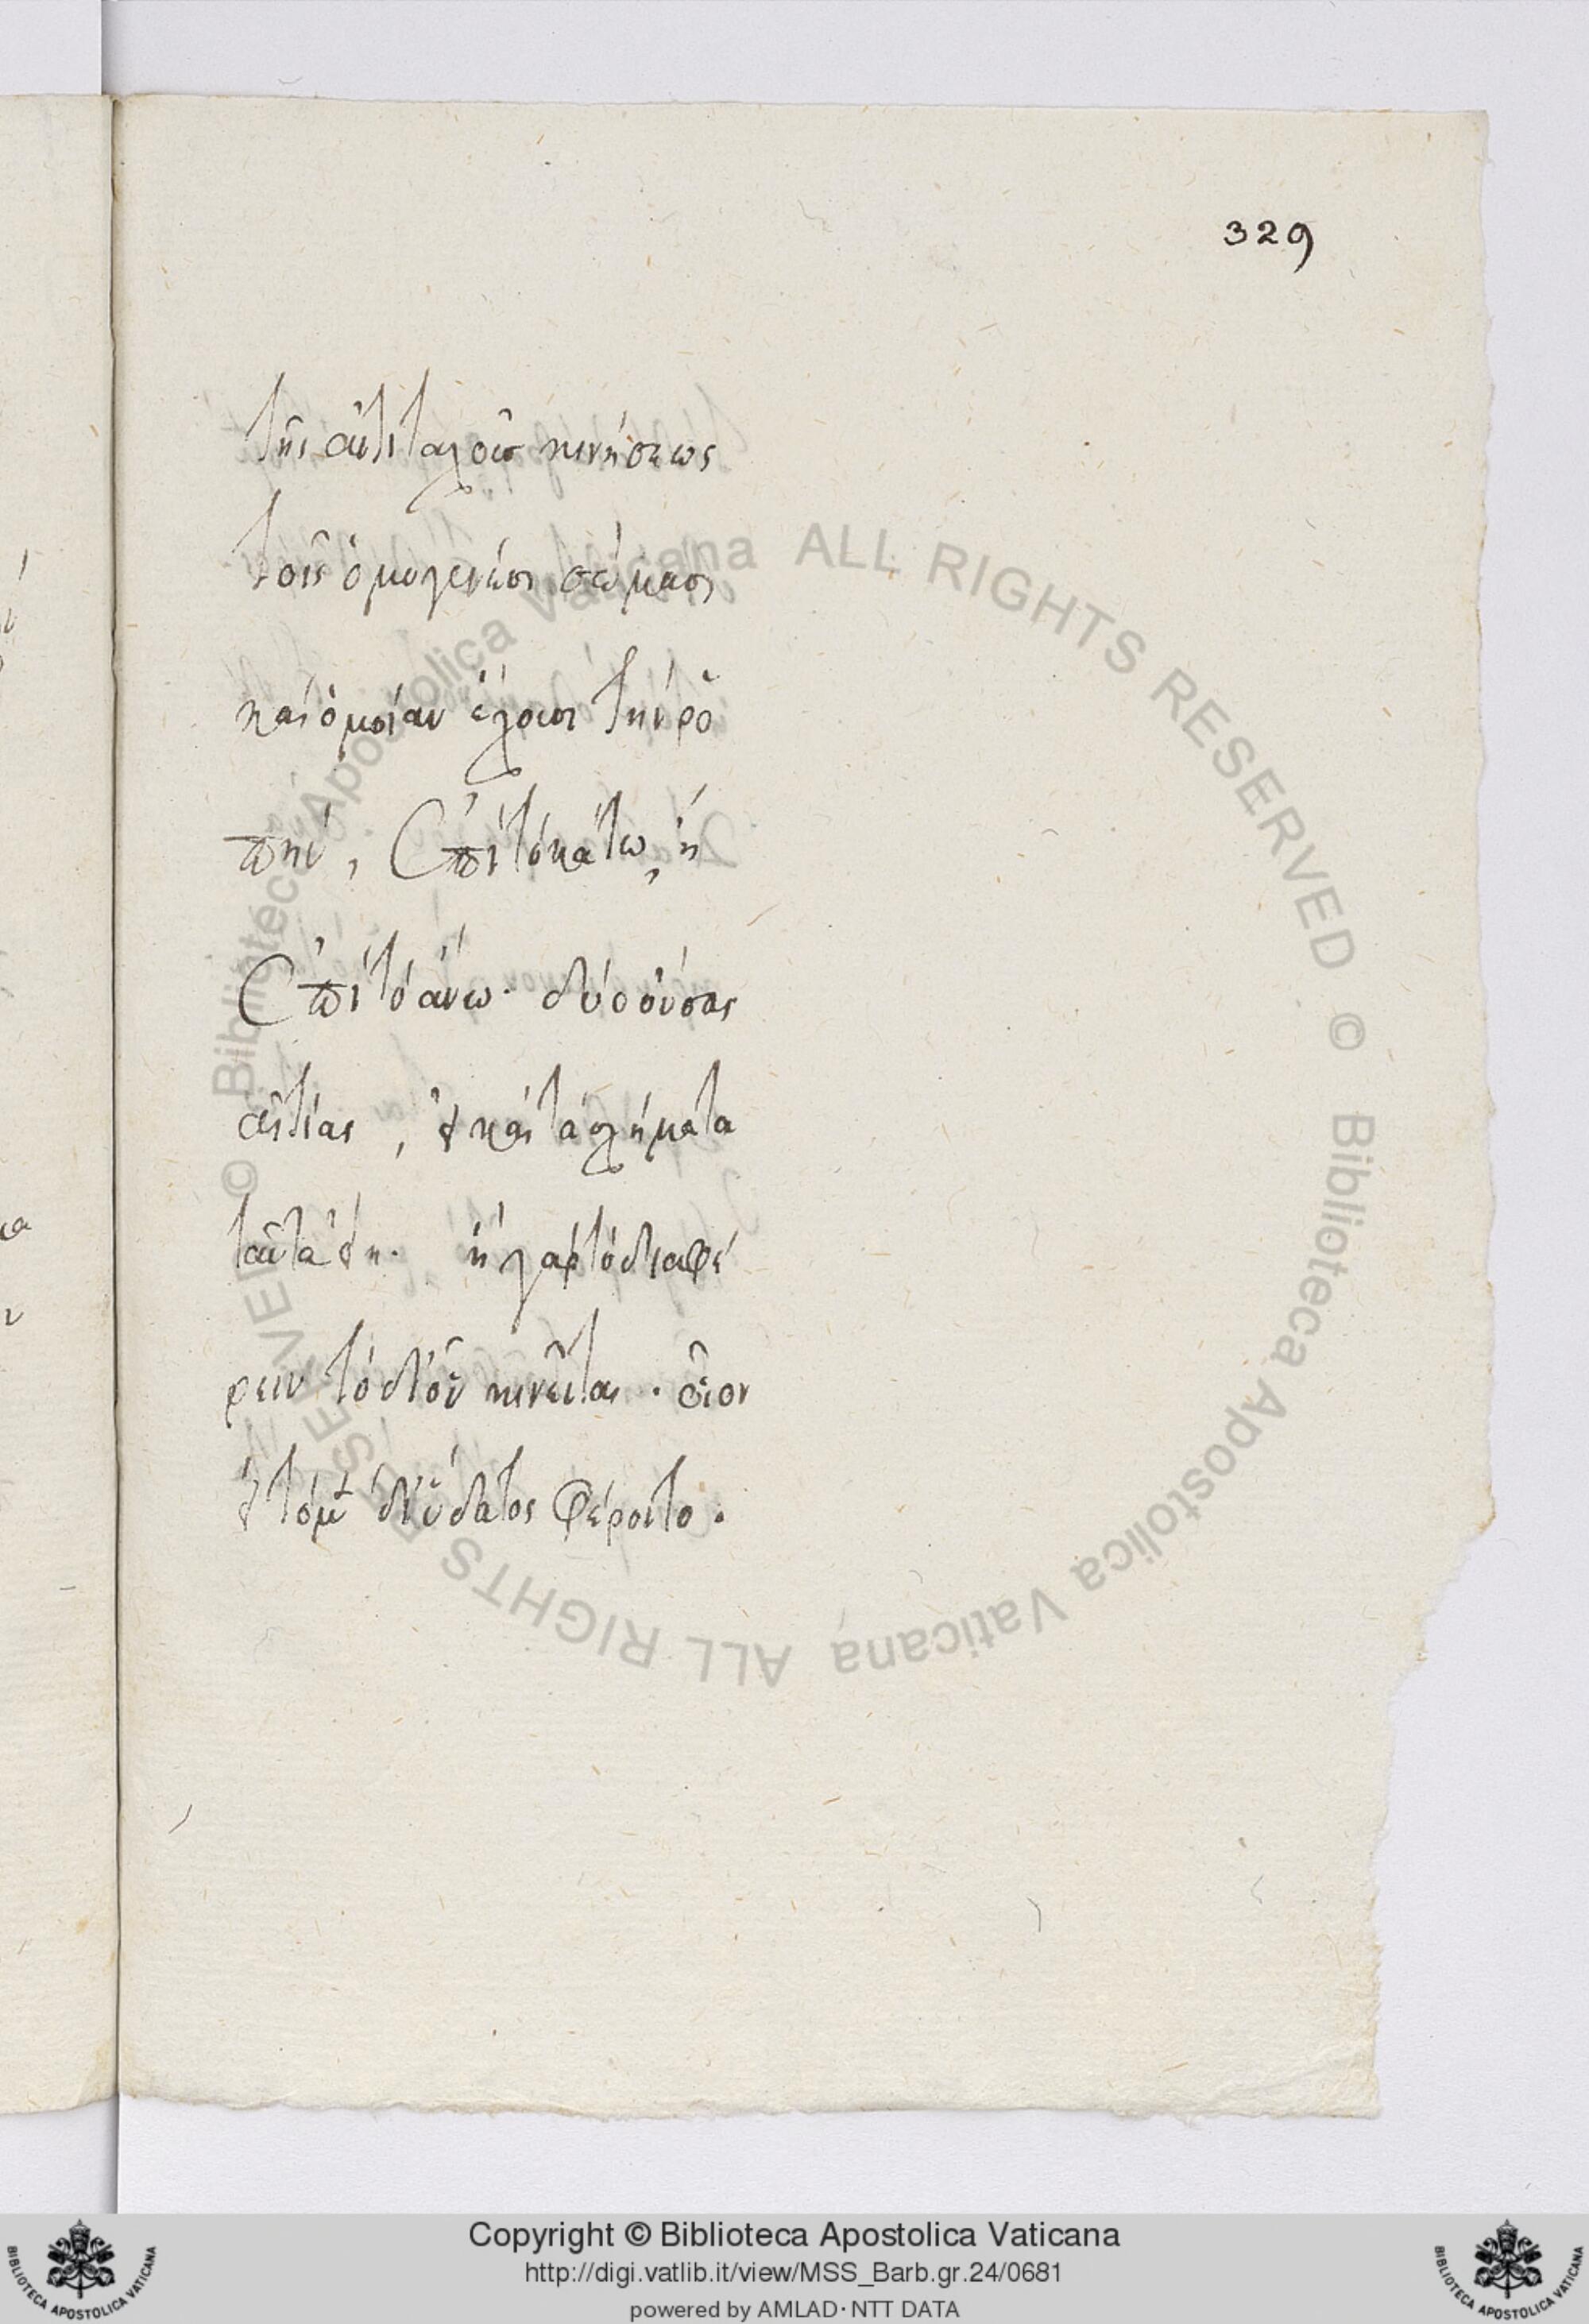 329
τῆς αὐτῆς ταχους κινήσεως
τοῖς ὁμογενέσι σώμασι
καὶ ὁμοίαν ἔχουσι τὴν ρο
πὴν, ἐπὶ τὸ κάτω, ἢ
ἐπὶ τὸ ἄνω. δύο οὔσας
αἰτίας, εἰ καὶ τὰ σχήματα
ταῦτα εἴη. ἢ γὰρ τὸ διαφέ
ρειν τὸ δι' οὗ κινεῖται. οἷον
εἰ τὸ μὲν δι' ὕδατος φέροιτο.
© Biblioteca Apostolica Vaticana ALL RIGHTS RESERVED © Biblioteca Apostolica Vaticana ALL RIGHTS RESERVED
Copyright © Biblioteca Apostolica Vaticana
http://digi.vatlib.it/view/MSS_Barb.gr.24/0681
powered by AMLAD·NTT DATA
BIBLIOTECA APOSTOLICA VATICANA
BIBLIOTECA APOSTOLICA VATICANA